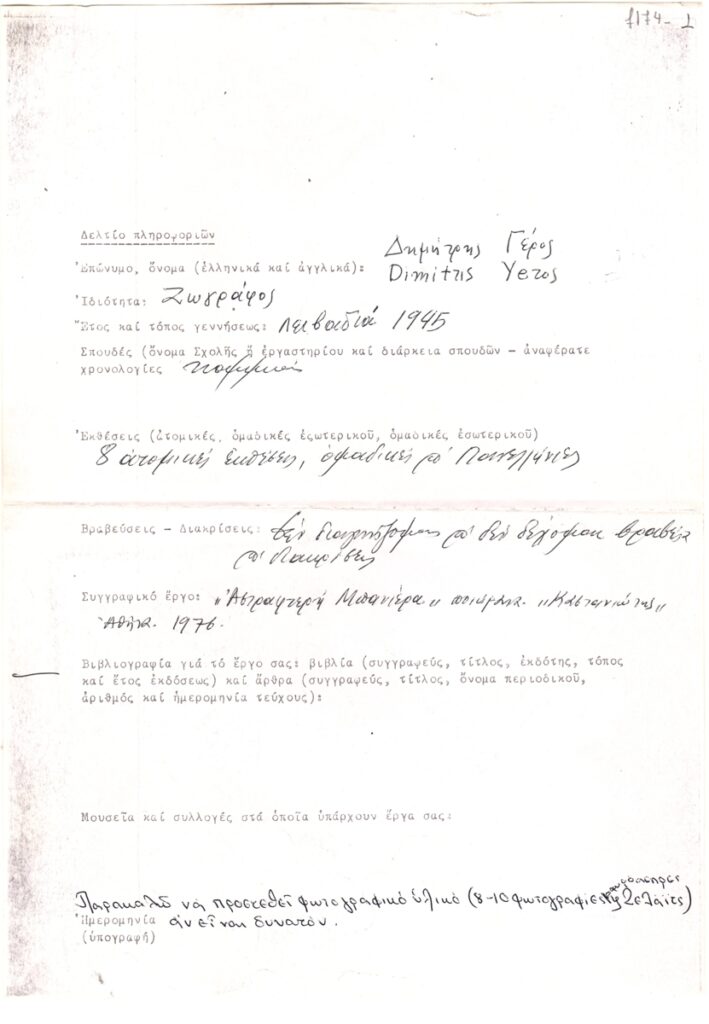 f174-1
Δελτίο πληροφοριῶν
Δημήτρης Γέρος
Ἐπώνυμο, ὄνομα (ἑλληνικά καί ἀγγλικά):
Dimitris Yeros
Ἰδιότητα: Ζωγράφος
Ἔτος καί τόπος γεννήσεως: Λειβαδιά 1945
Σπουδές (ὄνομα Σχολῆς ἤ ἐργαστηρίου καί διάρκεια σπουδῶν – ἀναφέρατε
χρονολογίες
Ἐκθέσεις (ἀτομικές, ὁμαδικές ἐξωτερικοῦ, ὁμαδικές ἐσωτερικοῦ)
8 ἀτομικές ἐκθέσεις, ὁμαδικές Πανελλήνιες
Βραβεύσεις – Διακρίσεις: δέν δέχομαι βραβεῖα
Συγγραφικό ἔργο: "Ἀστραφτερή Μπανιέρα" ποιήματα. "Καστανιώτης"
Ἀθήνα. 1976.
Βιβλιογραφία γιά τό ἔργο σας: βιβλία (συγγραφεύς, τίτλος, ἐκδότης, τόπος
καί ἔτος ἐκδόσεως) καί ἄρθρα (συγγραφεύς, τίτλος, ὄνομα περιοδικοῦ,
ἀριθμός καί ἡμερομηνία τεύχους):
Μουσεῖα καί συλλογές στά ὁποῖα ὑπάρχουν ἔργα σας:
Παρακαλῶ νά προστεθεῖ φωτογραφικό ὑλικό (8-10 φωτογραφίες μαυρόασπρες 2 σλάϊτς)
Ἡμερομηνία ἄν εἶναι δυνατόν.
(ὑπογραφή)